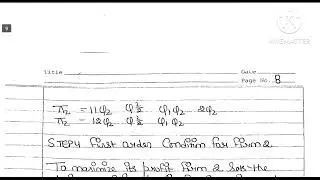 9
KINEMASTER
Title
Date
Page No. 8
π₂ = 11φ₂ φ₂² φ₁φ₂ 2φ₂
π₂ = 12φ₂ φ₂² φ₁φ₂
STEP4 First order Condition for firm 2
To maximize its profit firm 2 sets the